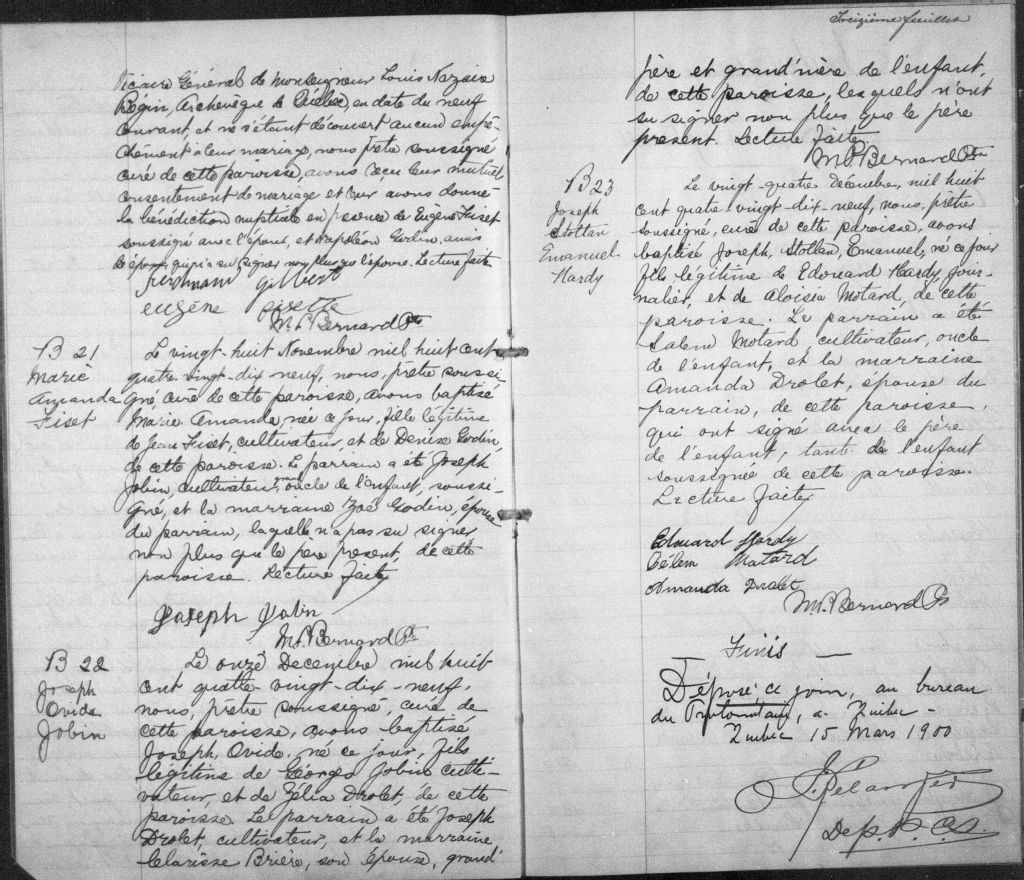 Vicaire Général de Monseigneur Louis Nazaire
Bégin, Archevêque de Québec, en date du neuf
courant, et ne s'étant découvert aucun empê-
chement à leur mariage, nous prêtre soussigné
curé de cette paroisse, avons reçu leur mutuel
consentement de mariage et leur avons donné
la bénédiction nuptiale en présence de Eugène Fiset
soussigné avec l'époux, et Napoléon Godin, amis
de époux qui n'a su signer non plus que l'épouse. Lecture faite
Gilbert
eugène fisette
M. P. Bernard Ptre
B 21
Marie
Amanda
Fiset
Le vingt-huit Novembre mil huit cent
quatre-vingt-dix neuf, nous, prêtre soussi-
gné curé de cette paroisse, avons baptisé
Marie Amanda, née ce jour, fille légitime
de Jean Fiset, cultivateur, et de Denise Godin,
de cette paroisse. Le parrain a été Joseph
Jobin, cultivateur, oncle de l'enfant, soussi-
gné, et la marraine Zoé Godin, épouse
du parrain, laquelle n'a pas su signer
non plus que le père présent, de cette
paroisse. Lecture faite,
Joseph Jobin
M. P. Bernard Ptre
B 22
Joseph
Ovide
Jobin
Le onze Decembre mil huit
cent quatre-vingt-dix-neuf,
nous, prêtre soussigné, curé de
cette paroisse, avons baptisé
Joseph, Ovide, né ce jour, fils
légitime de Georges Jobin culti-
vateur, et de Zélia Drolet, de cette
paroisse Le parrain a été Joseph
Drolet, cultivateur, et la marraine
Clarisse Brière, son épouse, grand'
Treizième feuillet
père et grand'mère de l'enfant
de cette paroisse, lesquels n'ont
su signer non plus que le père
present. Lecture faite,
M. P. Bernard Ptre
B 23
Joseph
Stollan
Emanuel
Hardy
Le vingt-quatre Décembre, mil huit
cent quatre-vingt-dix-neuf, nous, prêtre
soussigné, curé de cette paroisse, avons
baptisé Joseph, Stollan, Emanuel, né ce jour
fils légitime de Edouard Hardy, jour-
nalier, et de Aloisia Motard, de cette
paroisse. Le parrain a été
Salem Motard, cultivateur, oncle
de l'enfant, et la marraine
Amanda Drolet, épouse du
parrain, de cette paroisse,
qui ont signé avec le père
de l'enfant, tante de l'enfant
soussignée de cette paroisse.
Lecture faite,
Edouard Hardy
Célem Matard
Amanda Drolet
M. P. Bernard Ptre
Finis —
Déposé ce jour, au bureau
du Protonotaire, à Québec -
Québec 15 Mars 1900
Dep. P. C. S.